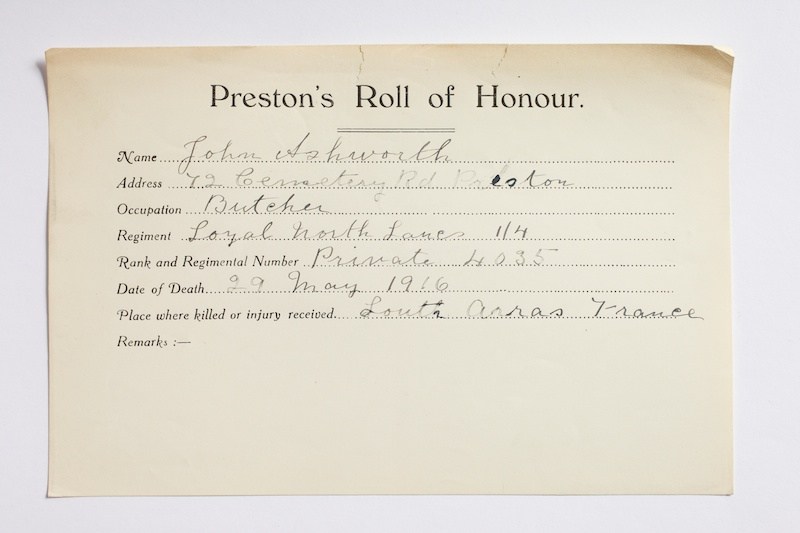 Preston's Roll of Honour.
Name John Ashworth
Address 72 Cemetery Rd Preston
Occupation Butcher
Regiment Loyal North Lancs 1/4
Rank and Regimental Number Private 4035
Date of Death 29 May 1916
Place where killed or injury received South Arras France
Remarks :—